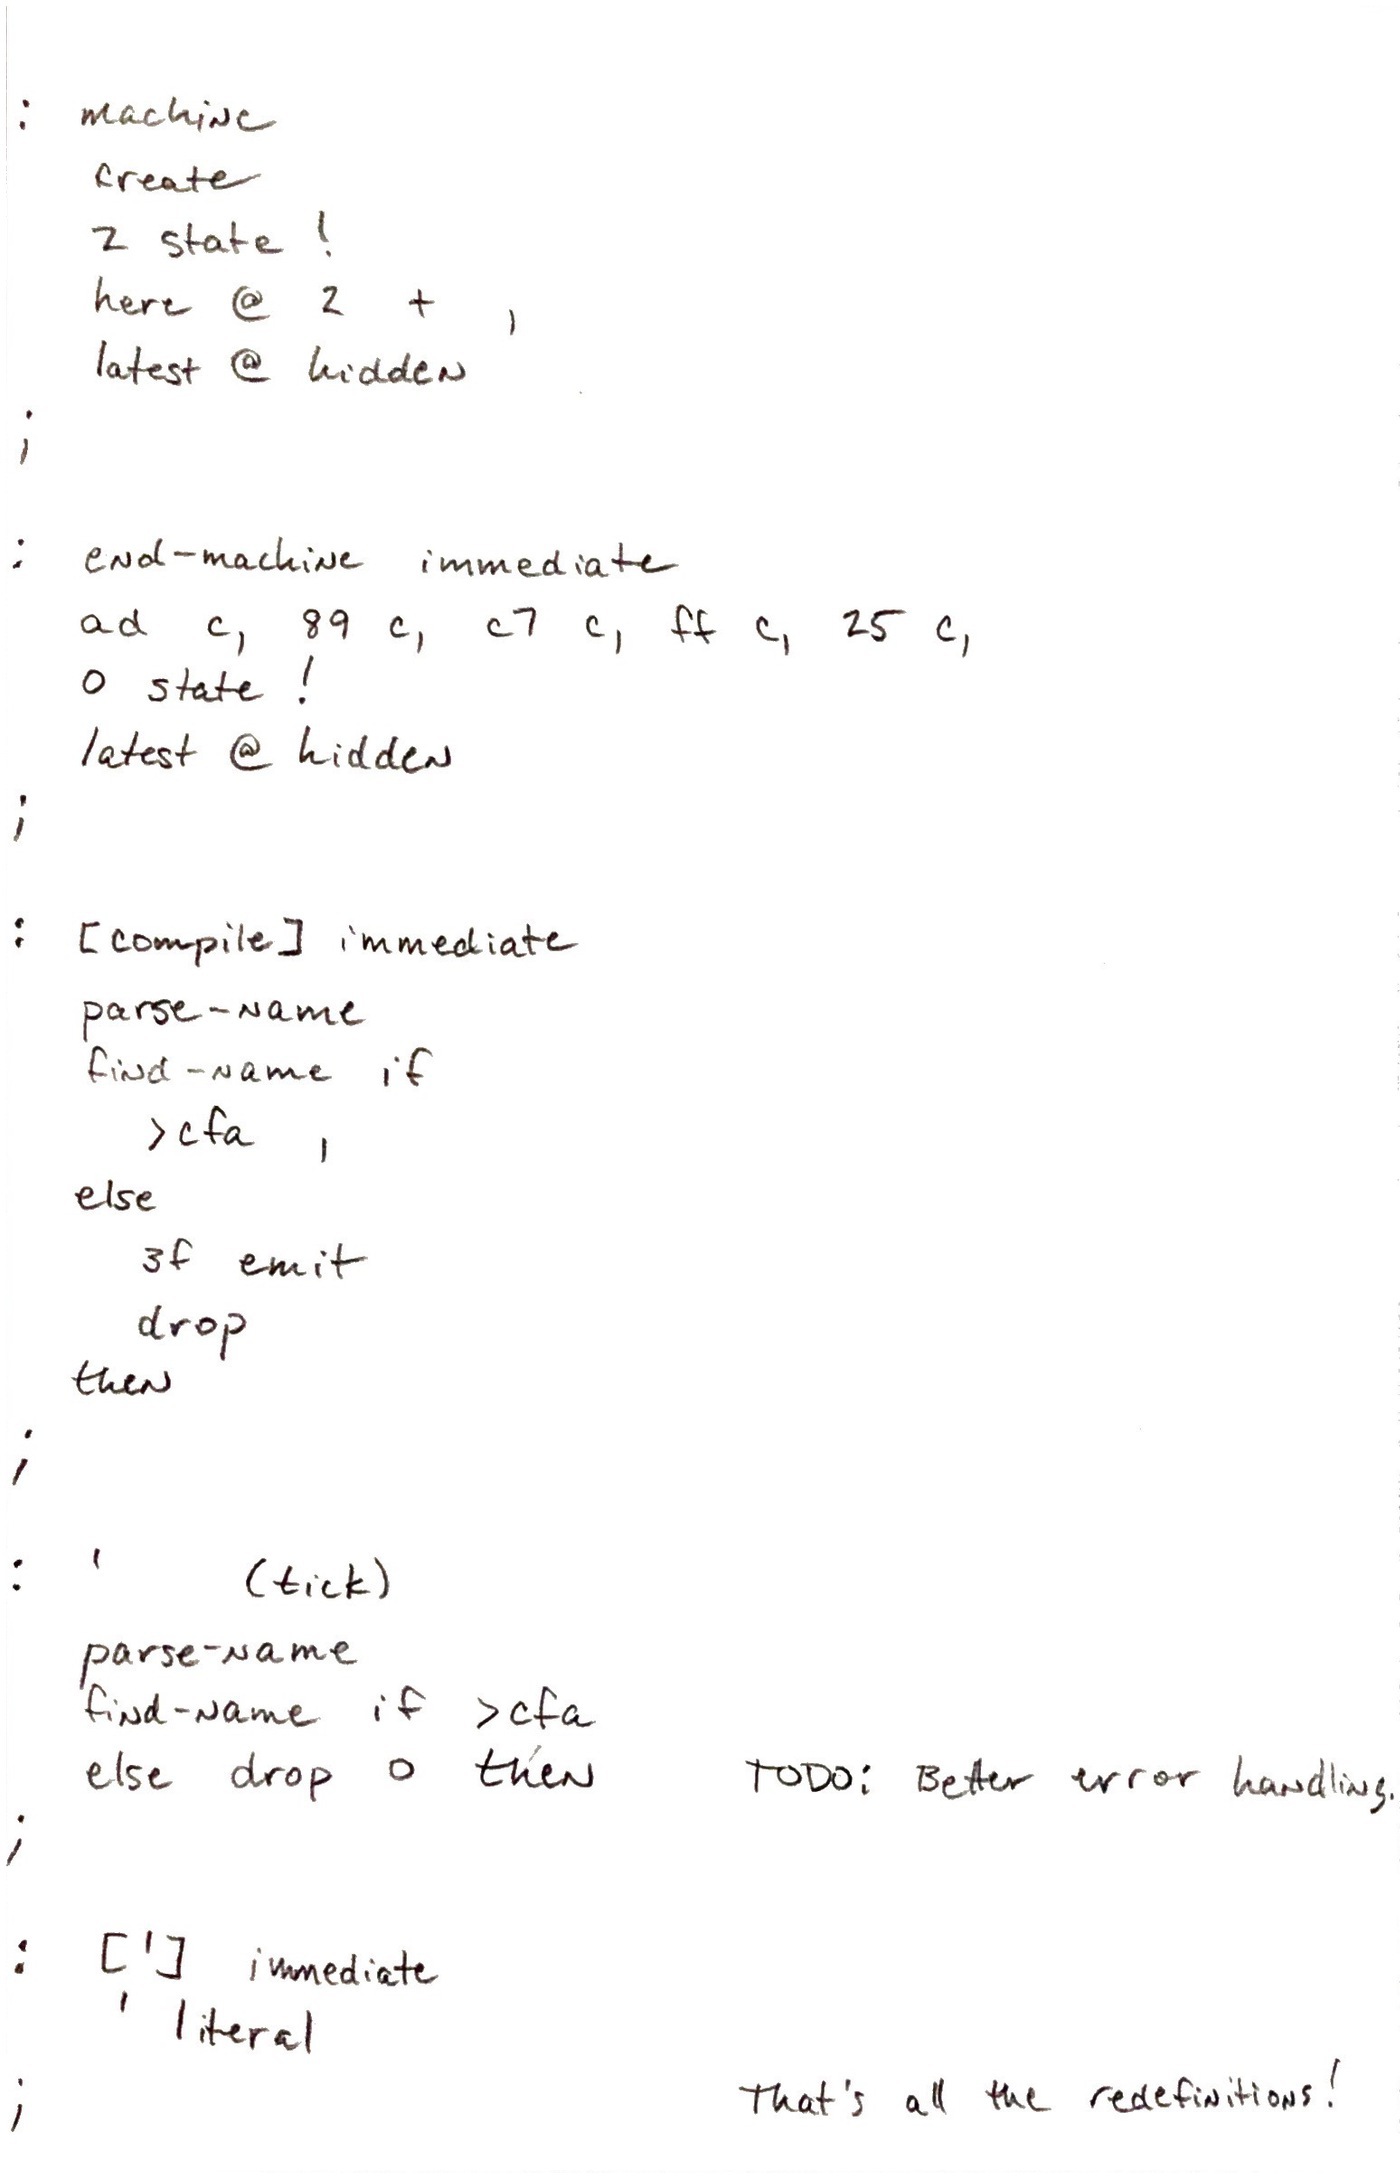 : machine
create
2 state !
here @ 2 + ,
latest @ hidden
;
: end-machine immediate
ad c, 89 c, c7 c, ff c, 25 c,
0 state !
latest @ hidden
;
: [compile] immediate
parse-name
find-name if
>cfa ,
else
3f emit
drop
then
;
: ' (tick)
parse-name
find-name if >cfa
else drop 0 then TODO: Better error handling.
;
: ['] immediate
' literal
; That's all the redefinitions!